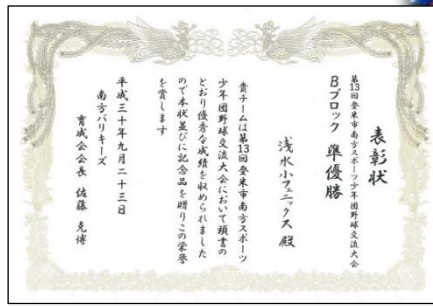 表彰状
第13回登米市南方スポーツ少年団野球交流大会
Bブロック 準優勝
浅水小フェニックス 殿
貴チームは第13回登米市南方スポーツ
少年団野球交流大会において頭書の
とおり優秀な成績を収められました
ので本状並びに記念品を贈りこの栄誉
を賞します
平成三十年九月二十三日
南方バリキーズ
育成会会長 佐藤 克博